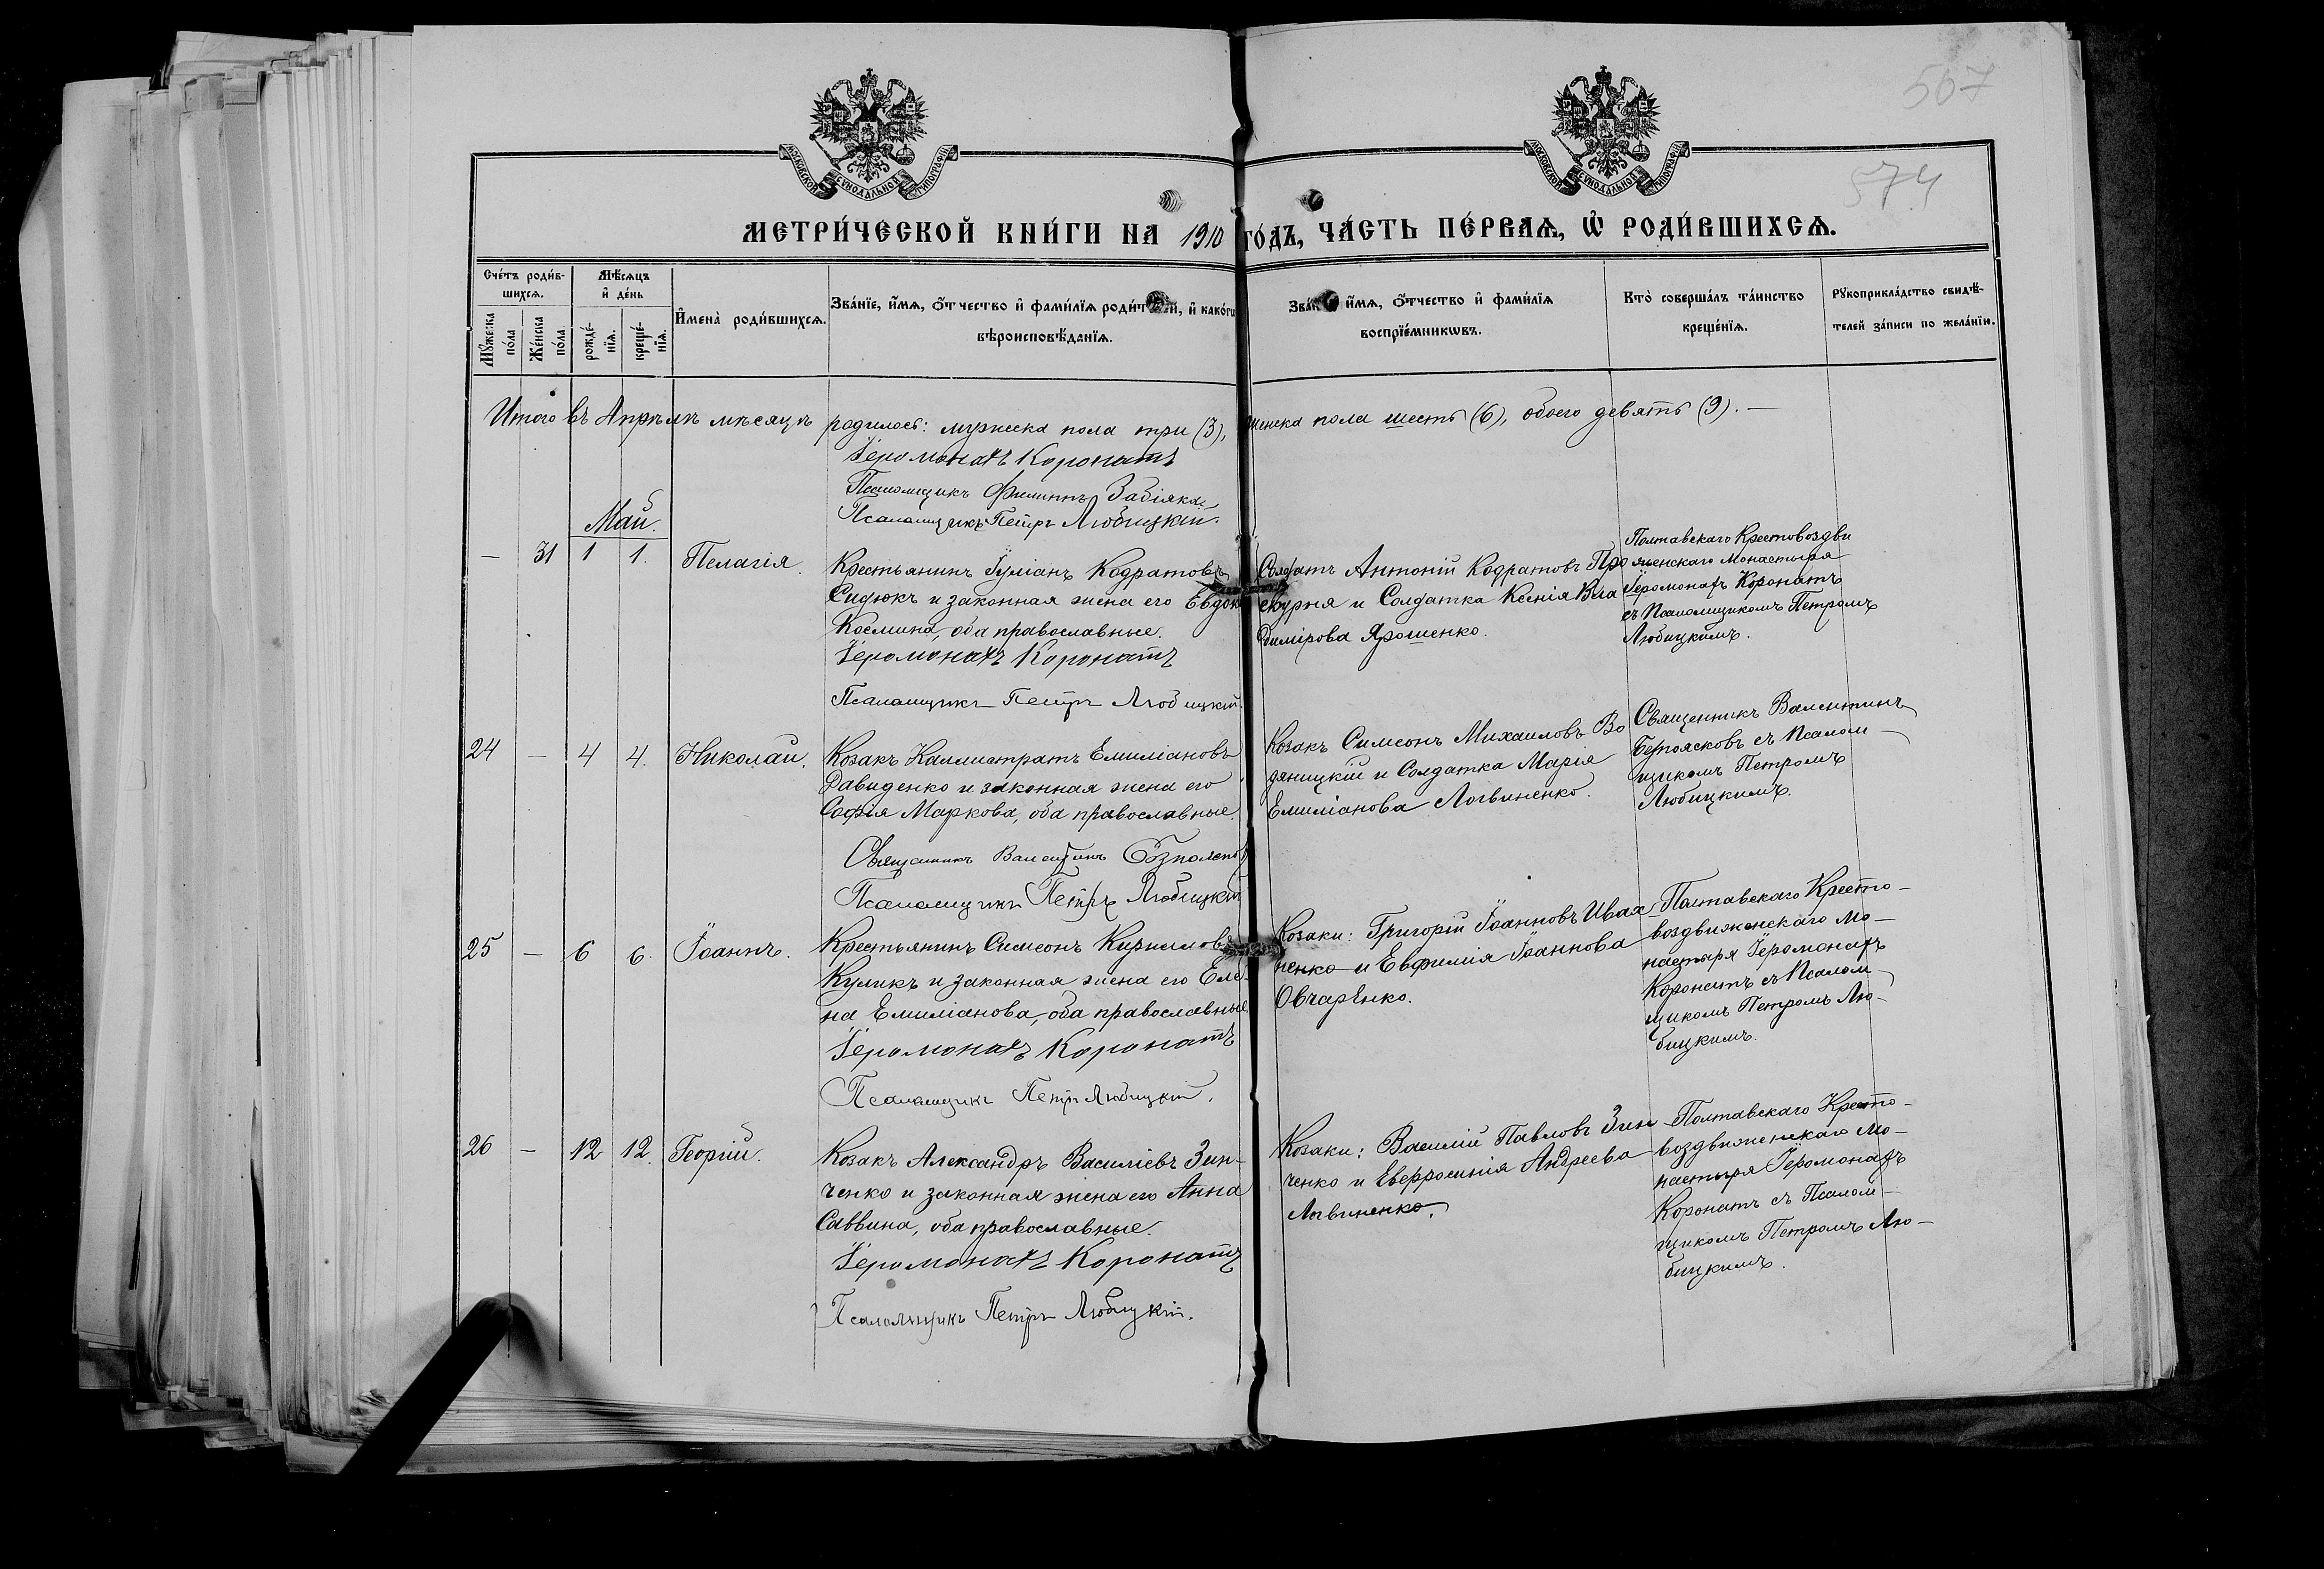 507
574
МОСКОВСКОЙ СѴНОДАЛЬНОЙ ТИПОГРАФІИ
МОСКОВСКОЙ СѴНОДАЛЬНОЙ ТИПОГРАФІИ
МЕТРИ́ЧЕСКОЙ КНИ́ГИ НА 1910 ГО́ДЪ, ЧА́СТЬ ПЕ́РВАѦ, Ѿ РОДИ́ВШИХСѦ.
Сче́тъ роди́в-
шихсѧ.
Мꙋ́жеска
по́ла
Же́нска
по́ла
Мѣ́сѧцъ
и҆ де́нь
рожде́-
нїѧ.
креще́-
нїѧ.
И҆мена̀ роди́вшихсѧ.
Зва́нїе, и҆́мѧ, ѻ҆́тчество и҆ фами́лїѧ роди́т й, и҆ како́гѡ
вѣроисповѣ́данїѧ.
Зва́н и҆́мѧ, ѻ҆́тчество и҆ фами́лїѧ
воспрїе́мникѡвъ.
Кто̀ соверша́лъ та́инство
креще́нїѧ.
Рꙋкоприкла́дство свидѣ́-
телей за́писи по жела́нїю.
Итого въ Апрѣлѣ мѣсяцѣ родилось: мужеска пола три (3), женска пола шесть (6), обоего девять (9). —
Іеромонахъ Коронатъ
Псаломщикъ Филиппъ Забіяка
Псаломщикъ Петръ Любицкій.
Май.
— 31 1 1. Пелагія.
Крестьянинъ Іуліанъ Кодратовъ
Сидюкъ и законная жена его Евдок
Космина, оба православные.
Іеромонахъ Коронатъ
Псаломщикъ Петръ Любицкій.
Солдатъ Антоній Кодратовъ Про
скурня и Солдатка Ксенія Вла
димірова Ярошенко.
Полтавскаго Крестовоздви
женскаго Монастыря
Іеромонахъ Коронатъ
съ Псаломщикомъ Петромъ
Любицкимъ.
24 — 4 4. Николай.
Козакъ Каллистратъ Емиліановъ
Давиденко и законная жена его
Софія Маркова, оба православные.
Священникъ Валентинъ
Псаломщикъ Петръ Любицкій
Козакъ Симеонъ Михаиловъ Во
дяницкій и Солдатка Марія
Емиліанова Логвиненко.
Священникъ Валентинъ
съ Псалом-
щикомъ Петромъ
Любицкимъ.
25 — 6 6. Іоаннъ.
Крестьянинъ Симеонъ Кирилловъ
Куликъ и законная жена его Еле-
на Емиліанова, оба православные
Іеромонахъ Коронатъ
Псаломщикъ Петръ Любицкій.
Козаки: Григорій Іоанновъ Иваx
ненко и Евфимія Іоаннова
Овчаренко.
Полтавскаго Кресто-
воздвиженскаго Мо-
настыря Іеромонахъ
Коронатъ съ Псалом-
щикомъ Петромъ Лю-
бицкимъ.
26 — 12 12. Георгій.
Козакъ Александръ Василіевъ Зин-
ченко и законная жена его Анна
Саввина, оба православные.
Іеромонахъ Коронатъ
Псаломщикъ Петръ Любицкій.
Козаки: Василій Павловъ Зин
ченко и Евфросинія Андреева
Логвиненко.
Полтавскаго Кресто-
воздвиженскаго Мо-
настыря Іеромонахъ
Коронатъ съ Псалом-
щикомъ Петромъ Лю-
бицкимъ.